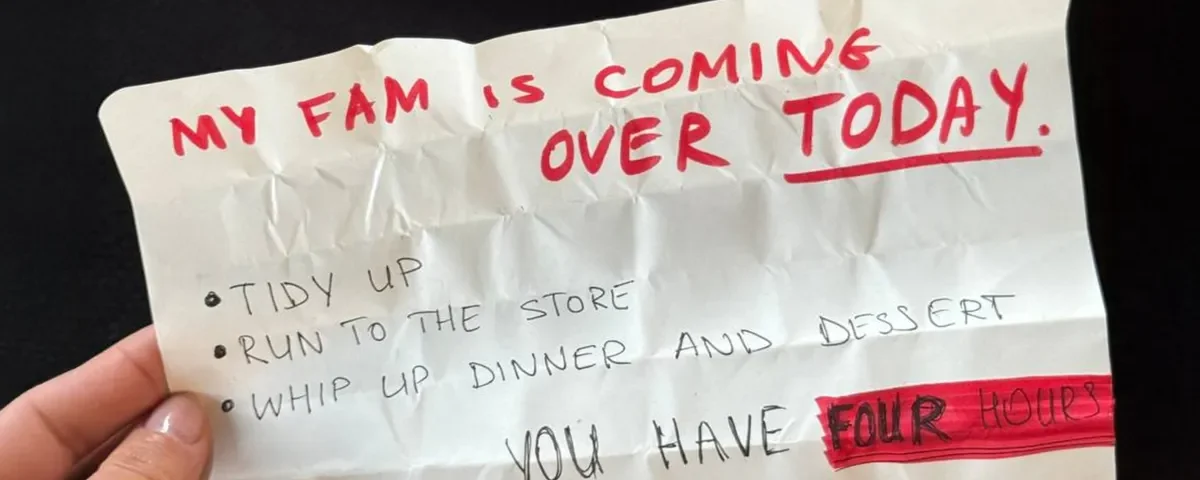 MY FAM IS COMING
OVER TODAY.
• TIDY UP
• RUN TO THE STORE
• WHIP UP DINNER AND DESSERT
YOU HAVE FOUR HOURS